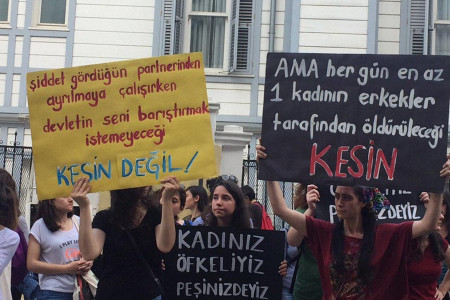 şiddet gördüğün partnerinden
ayrılmaya çalışırken
devletin seni barıştırmak
istemeyeceği
KESİN DEĞİL!
AMA her gün en az
1 kadının erkekler
tarafından öldürüleceği
KESİN
KADINIZ
ÖFKELİYİZ
PEŞİNİZDEYİZ
PEŞİNİZDEYİZ.